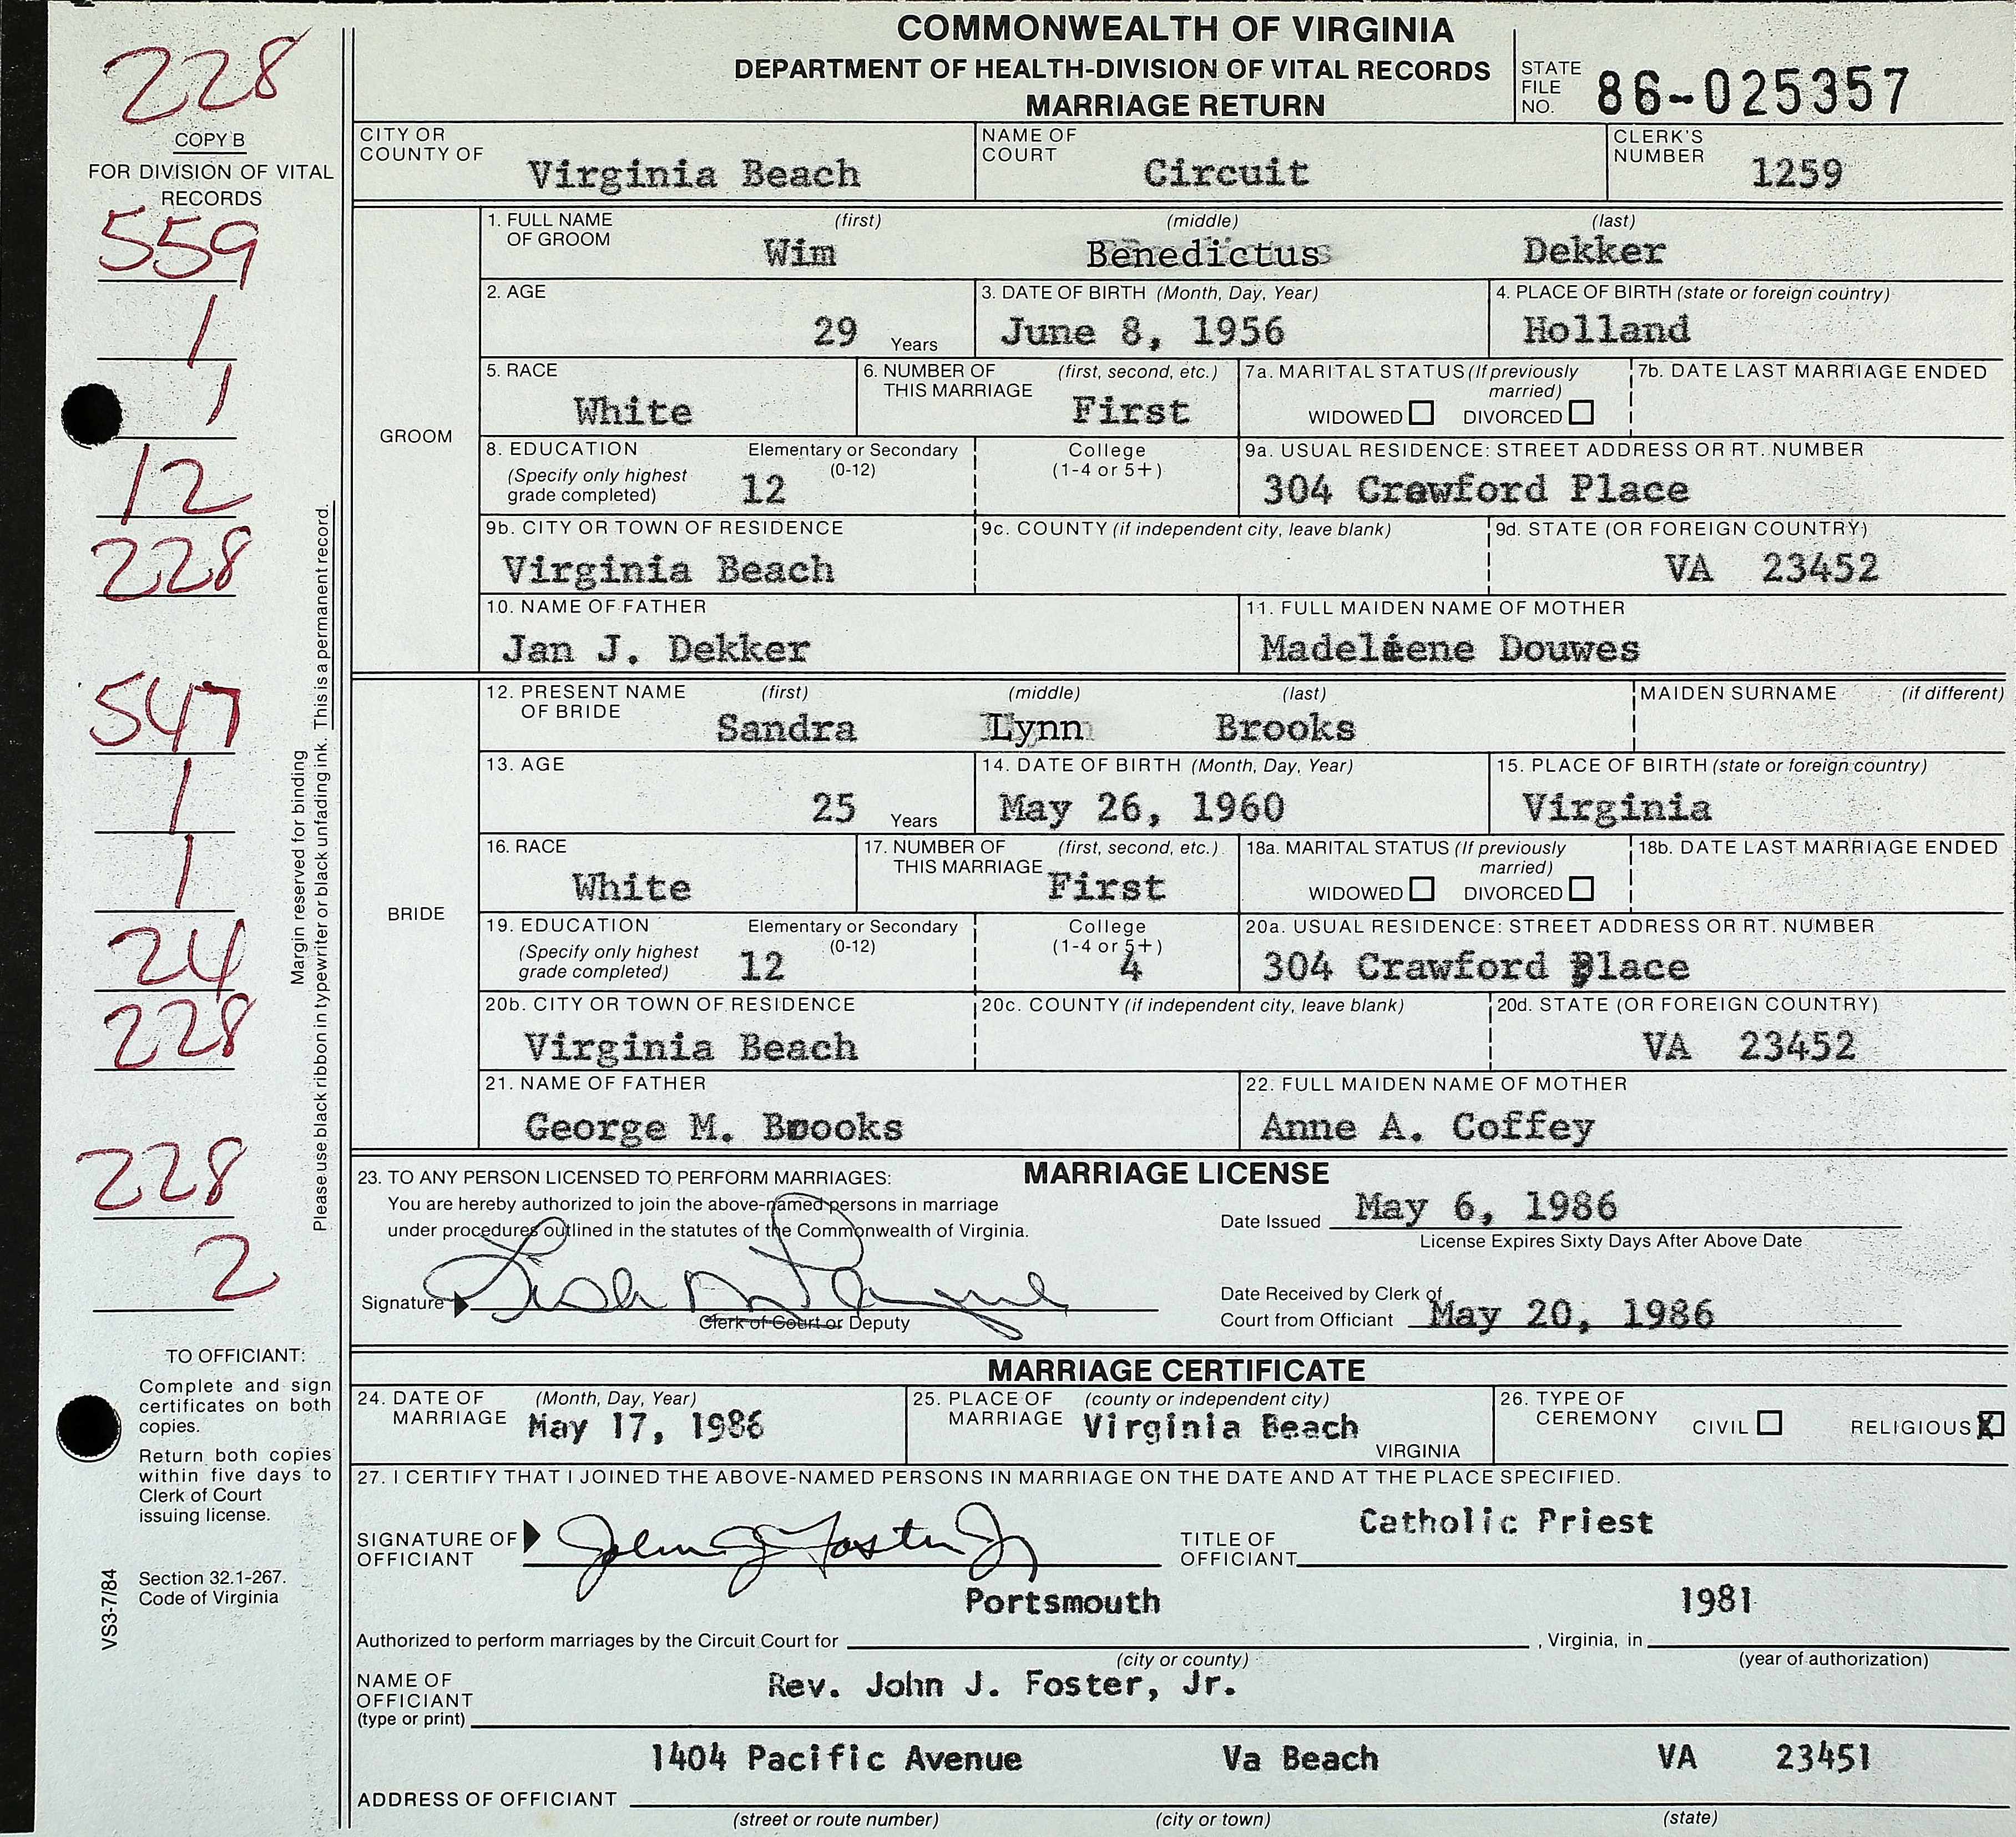 COMMONWEALTH OF VIRGINIA
DEPARTMENT OF HEALTH-DIVISION OF VITAL RECORDS
MARRIAGE RETURN
STATE FILE NO. 86-025357
228
COPY B
FOR DIVISION OF VITAL
RECORDS
559
1
1
12
228
547
1
1
24
228
228
2
Margin reserved for binding
Please use black ribbon in typewriter or black unfading ink. This is a permanent record.
TO OFFICIANT:
Complete and sign
certificates on both
copies.
Return both copies
within five days to
Clerk of Court
issuing license.
Section 32.1-267.
Code of Virginia
VS3-7/84
CITY OR COUNTY OF Virginia Beach
NAME OF COURT Circuit
CLERK'S NUMBER 1259
GROOM
1. FULL NAME OF GROOM (first) (middle) (last)
Wim Benedictus Dekker
2. AGE 29 Years
3. DATE OF BIRTH (Month, Day, Year) June 8, 1956
4. PLACE OF BIRTH (state or foreign country) Holland
5. RACE White
6. NUMBER OF THIS MARRIAGE (first, second, etc.) First
7a. MARITAL STATUS (If previously married) WIDOWED DIVORCED
7b. DATE LAST MARRIAGE ENDED
8. EDUCATION (Specify only highest grade completed) Elementary or Secondary (0-12) 12
College (1-4 or 5+)
9a. USUAL RESIDENCE: STREET ADDRESS OR RT. NUMBER
304 Crawford Place
9b. CITY OR TOWN OF RESIDENCE Virginia Beach
9c. COUNTY (if independent city, leave blank)
9d. STATE (OR FOREIGN COUNTRY) VA 23452
10. NAME OF FATHER Jan J. Dekker
11. FULL MAIDEN NAME OF MOTHER Madeleene Douwes
BRIDE
12. PRESENT NAME OF BRIDE (first) (middle) (last)
Sandra Lynn Brooks
MAIDEN SURNAME (if different)
13. AGE 25 Years
14. DATE OF BIRTH (Month, Day, Year) May 26, 1960
15. PLACE OF BIRTH (state or foreign country) Virginia
16. RACE White
17. NUMBER OF THIS MARRIAGE (first, second, etc.) First
18a. MARITAL STATUS (If previously married) WIDOWED DIVORCED
18b. DATE LAST MARRIAGE ENDED
19. EDUCATION (Specify only highest grade completed) Elementary or Secondary (0-12) 12
College (1-4 or 5+) 4
20a. USUAL RESIDENCE: STREET ADDRESS OR RT. NUMBER
304 Crawford Place
20b. CITY OR TOWN OF RESIDENCE Virginia Beach
20c. COUNTY (if independent city, leave blank)
20d. STATE (OR FOREIGN COUNTRY) VA 23452
21. NAME OF FATHER George M. Brooks
22. FULL MAIDEN NAME OF MOTHER Anne A. Coffey
MARRIAGE LICENSE
23. TO ANY PERSON LICENSED TO PERFORM MARRIAGES:
You are hereby authorized to join the above-named persons in marriage
under procedures outlined in the statutes of the Commonwealth of Virginia.
Date Issued May 6, 1986
License Expires Sixty Days After Above Date
Signature
Clerk of Court or Deputy
Date Received by Clerk of
Court from Officiant May 20, 1986
MARRIAGE CERTIFICATE
24. DATE OF MARRIAGE (Month, Day, Year) May 17, 1986
25. PLACE OF MARRIAGE (county or independent city) Virginia Beach VIRGINIA
26. TYPE OF CEREMONY CIVIL RELIGIOUS X
27. I CERTIFY THAT I JOINED THE ABOVE-NAMED PERSONS IN MARRIAGE ON THE DATE AND AT THE PLACE SPECIFIED.
SIGNATURE OF OFFICIANT John J Foster Jr
TITLE OF OFFICIANT Catholic Priest
Portsmouth 1981
Authorized to perform marriages by the Circuit Court for , Virginia, in
(city or county) (year of authorization)
NAME OF OFFICIANT (type or print) Rev. John J. Foster, Jr.
1404 Pacific Avenue Va Beach VA 23451
ADDRESS OF OFFICIANT
(street or route number) (city or town) (state)